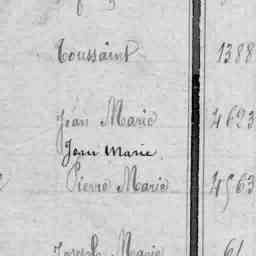 Toussaint 1388
Jean Marie 4693
Jean Marie.
Pierre Marie 4563
Joseph Marie 61